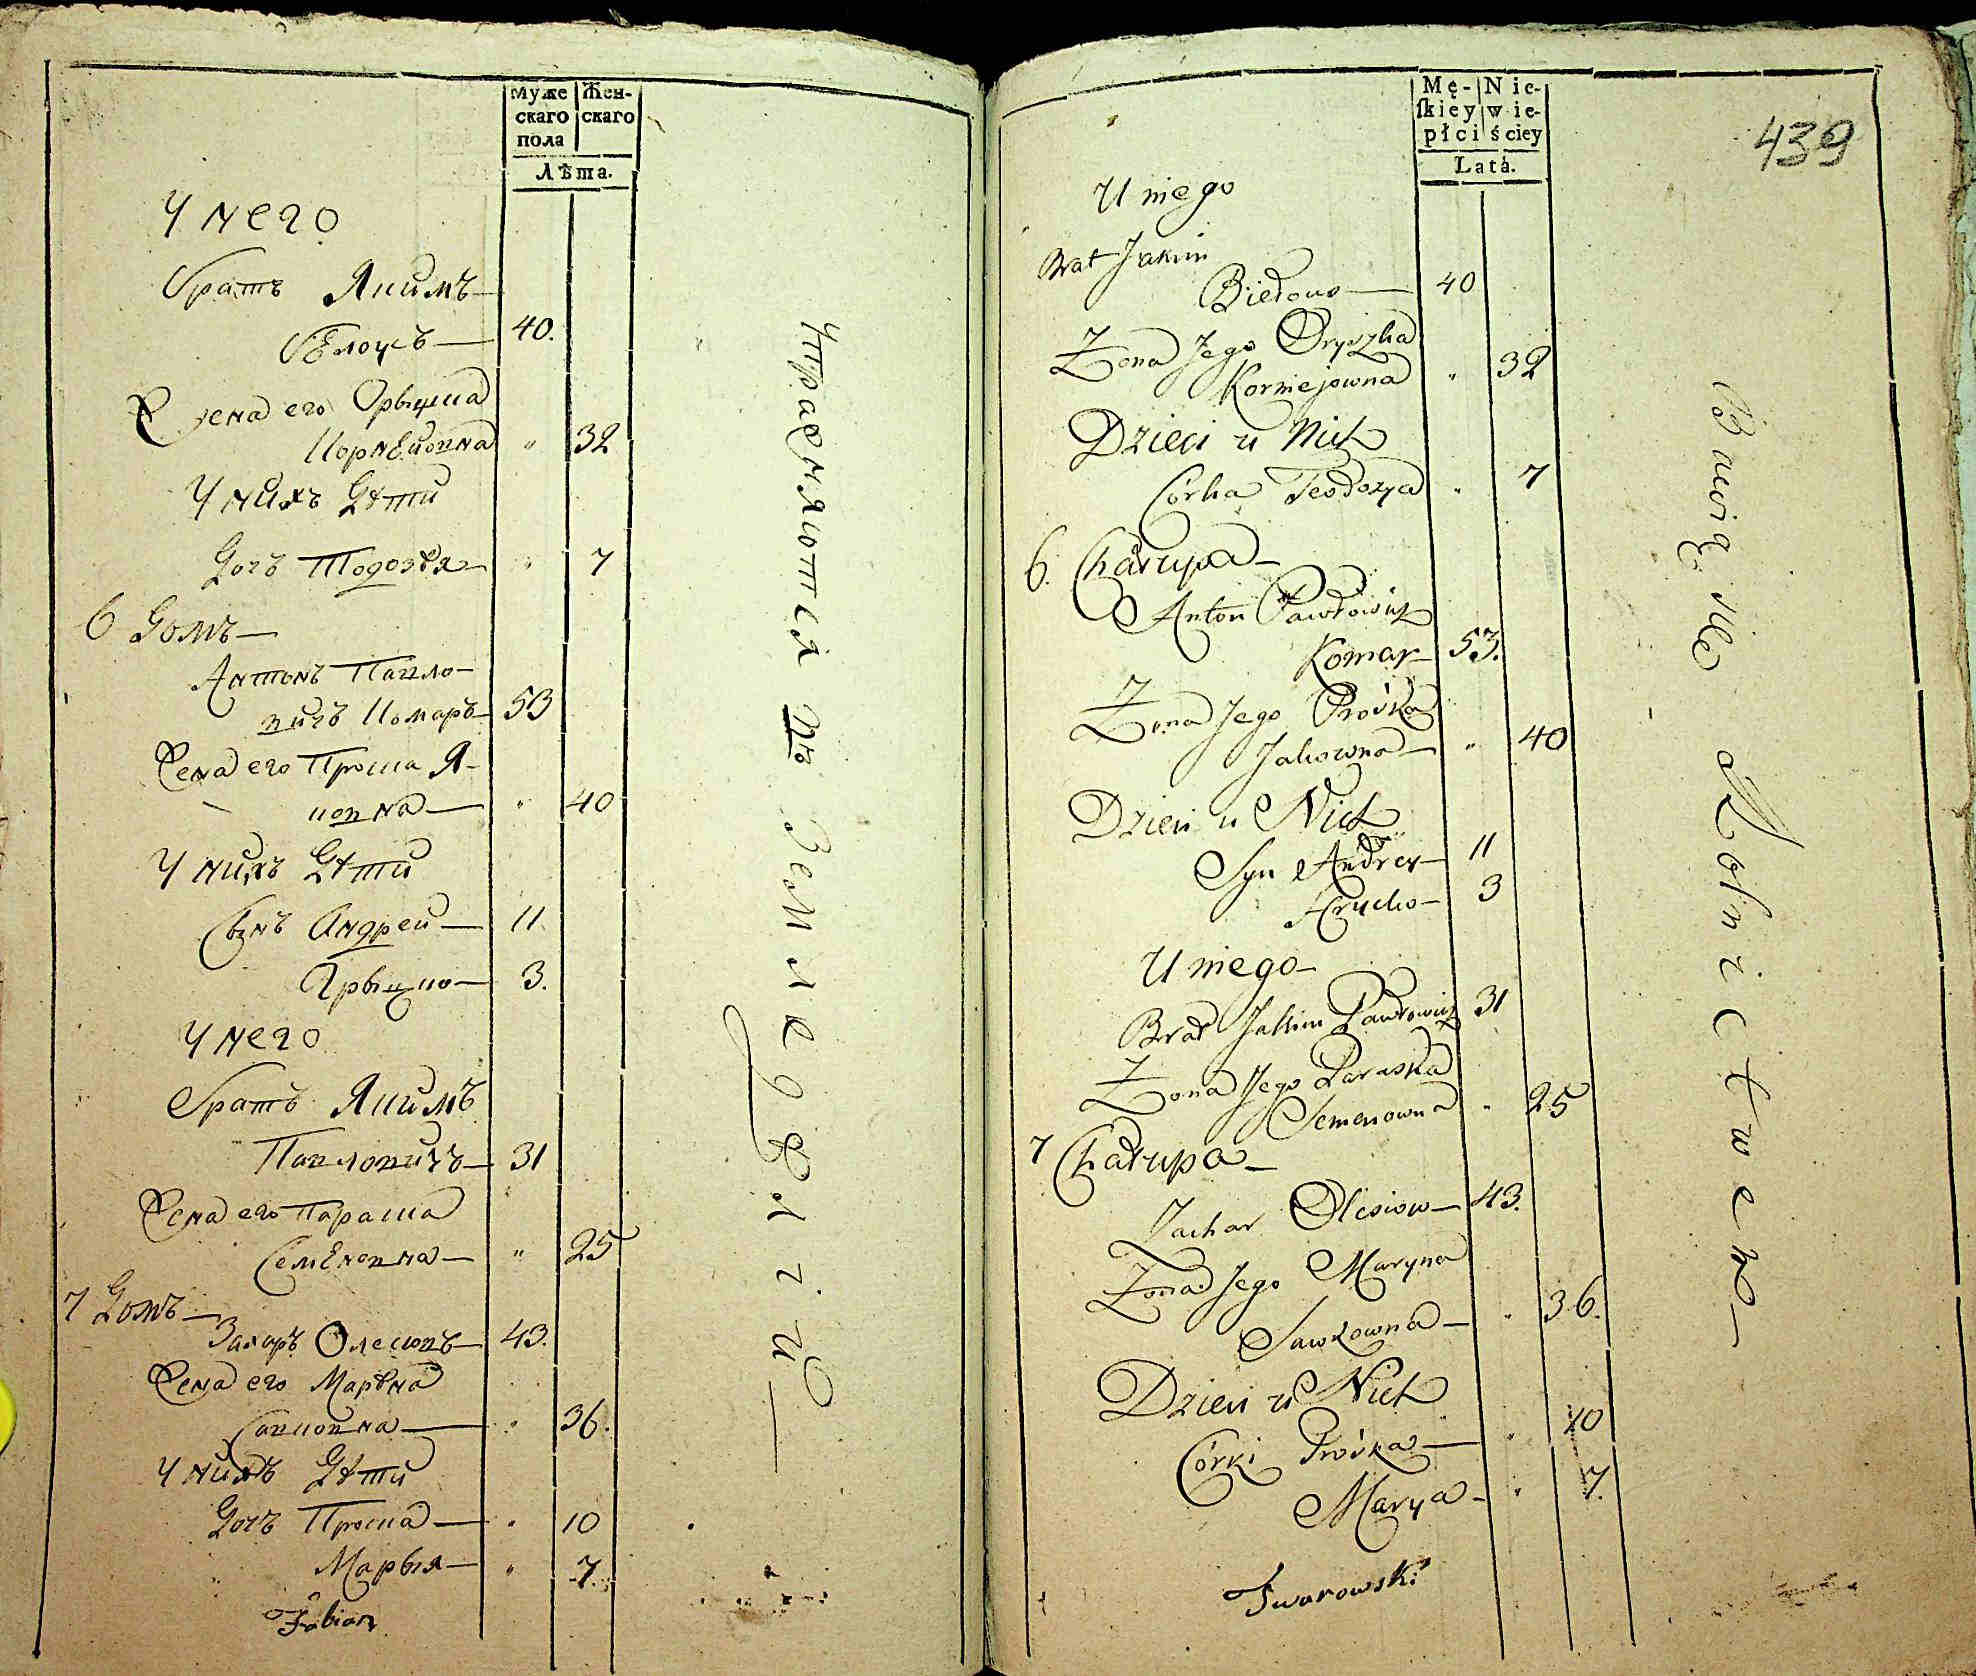 Муже
скаго
пола
Жен-
скаго
Лѣта.
У него
братъ Якимъ
Бѣлоусъ 40.
Жена его Орышка
Корнѣиовна " 32
У нихъ Дѣти
Дочь Тодозѣя " 7
6 Домъ
Антонъ Павло-
вичъ Комаръ 53
Жена его Проська Я-
ковна " 40
У нихъ Дѣти
Сынъ Андреи 11
Грыцко 3.
У него
братъ Якимъ
Павловичъ 31
Жена его Параска
Семѣновна " 25
7 Домъ
Захаръ Олесювъ 43.
Жена его Марына
Савковна " 36.
У нихъ Дѣти
Дочь Проська " 10
Марыя " 7.
Fabian
Упражняются въ Земледѣлѣи
Mę-
ſkiey
płci
Nie-
wie-
ściey
Latá.
439
U niego
Brat Jakim
Biełous 40
Zona Jego Oryszka
Korniejowna " 32
Dzieci u Nich
Córka Teodozya " 7
6. Chałupa
Anton Pawłowicz
Komar 53.
Zona Jego Prośka
Jakowna " 40
Dzieci u Nich
Syn Andrey 11
Hrycko 3
U niego
Brat Jakim Pawłowicz 31
Zona Jego Paraska
Semenowna " 25
7 Chałupa
Zachar Olesiow 43.
Zona Jego Maryna
Sawkowna " 36.
Dzieci u Nich
Córki Prośka " 10
Marya " 7.
Tworowski
Bawią się Rolnictwem